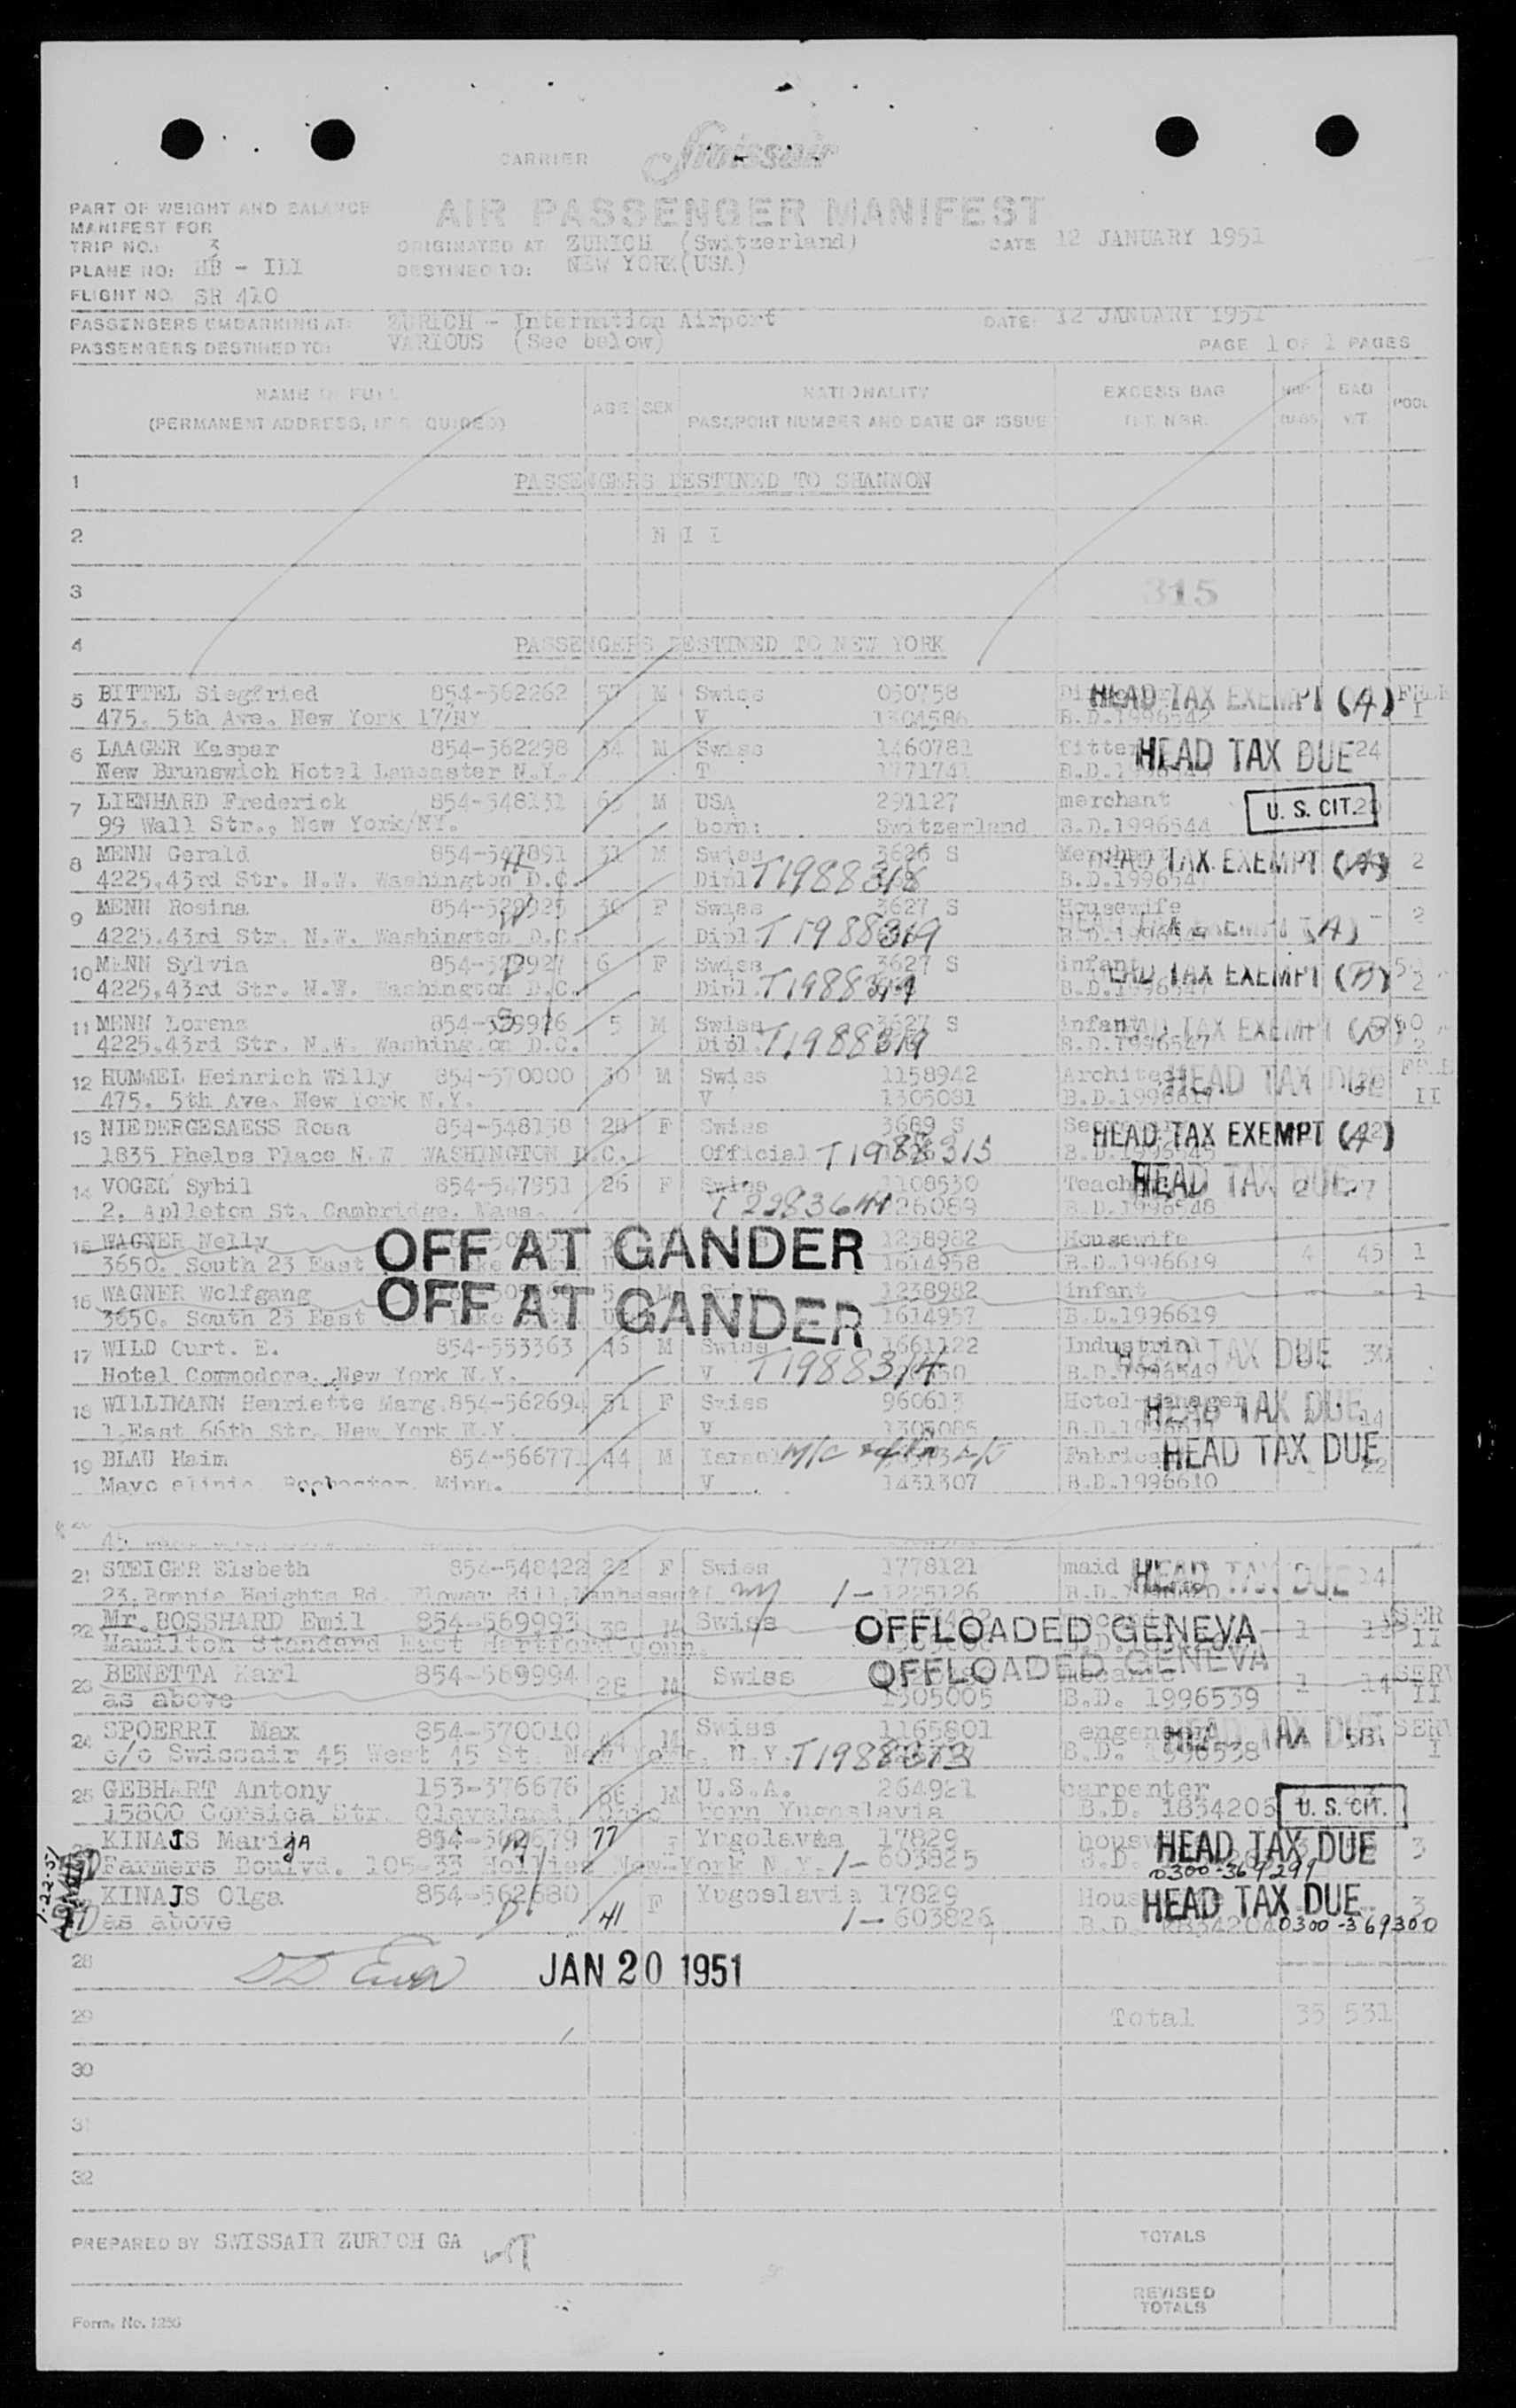 CARRIER Swissair
PART OF WEIGHT AND BALANCE AIR PASSENGER MANIFEST
MANIFEST FOR
TRIP NO. 3 ORIGINATED AT ZURICH (Switzerland) DATE 12 JANUARY 1951
PLANE NO: HB - ILI DESTINED TO: NEW YORK(USA)
FLIGHT NO. SR 410
PASSENGERS EMBARKING AT: ZURICH - Internation Airport DATE: 12 JANUARY 1951
PASSENGERS DESTINED TO: VARIOUS (See below) PAGE 1 OF 1 PAGES
NAME IN FULL AGE SEX NATIONALITY EXCESS BAG NBR BAG POOL
(PERMANENT ADDRESS, IF REQUIRED) PASSPORT NUMBER AND DATE OF ISSUE TKT. NBR. BAGS WT.
1 PASSENGERS DESTINED TO SHANNON
2 N I L
3 315
4 PASSENGERS DESTINED TO NEW YORK
5 BITTEL Siegfried 854-562262 57 M Swiss 050758 HEAD TAX EXEMPT (A)
475. 5th Ave. New York 17/NY V 1304586 B.D.1996542 I
6 LAAGER Kaspar 854-562298 M Swiss 1460781 fitter HEAD TAX DUE 24
New Brunswich Hotel Lancaster N.Y. T 1771741
7 LIENHARD Frederick 854-548131 M USA 291127 merchant U. S. CIT.
99 Wall Str., New York/NY. born: Switzerland B.D.1996544
8 MENN Gerald 854-547891 31 M Swiss 3626 S HEAD TAX EXEMPT (A) 2
4225.43rd Str. N.W. Washington D.C. Dipl. T1988318
9 MENN Rosina 30 F Swiss 3627 S Housewife 2
4225.43rd Str. N.W. Washington D.C. Dipl. T1988319 EXEMPT (A)
10 MENN Sylvia 6 F Swiss 3627 S infant HEAD TAX EXEMPT (B)
4225.43rd Str. N.W. Washington D.C. Dipl. T1988319 2
11 MENN Lorenz 5 M Swiss 3627 S infant HEAD TAX EXEMPT (B)
4225.43rd Str. N.W. Washington D.C. Dipl. T1988319 B.D.1996547 2
12 HUMMEL Heinrich Willy 854-570000 30 M Swiss 1158942 Architect HEAD TAX DUE
475. 5th Ave. New York N.Y. V 1305081 B.D.1996617 II
13 NIEDERGESAESS Rosa 854-548138 28 F Swiss 3689 S HEAD TAX EXEMPT (A)
1835 Phelps Place N.W WASHINGTON D.C. Official T1988315 B.D.1996545
14 VOGEL Sybil 854-547951 26 F Swiss 1108530 Teacher HEAD TAX DUE
2. Aplleton St. Cambridge. Mass. B.D.1996548
15 WAGNER Nelly OFF AT GANDER 1238982 Housewife
3650. South 23 East 1614958 B.D.1996619 4 45 1
16 WAGNER Wolfgang OFF AT GANDER 1238982 infant - - 1
3650. South 23 East 1614957 B.D.1996619
17 WILD Curt. E. 854-553363 46 M Swiss 1661122 Industrial HEAD TAX DUE 30
Hotel Commodore. New York N.Y. V T1988314 B.D.1996549
18 WILLIMANN Henriette Marg. 854-562694 51 F Swiss 960613 Hotel-manager HEAD TAX DUE 14
1.East 66th Str. New York N.Y. V 1305085
19 BLAU Haim 854-566771 44 M Israel HEAD TAX DUE 22
Mayo clinic Rochester. Minn. V 1431307 B.D.1996610
21 STEIGER Elsbeth 854-548422 22 F Swiss 1778121 maid HEAD TAX DUE 14
23.Bonnie Heights Rd. Flower Hill, Manhasset NY 1- 1225126
22 Mr. BOSSHARD Emil 854-569993 38 M Swiss OFFLOADED GENEVA 1 SER
Hamilton Standard East Hartford Conn. II
23 BENETTA Karl 854-569994 28 M Swiss OFFLOADED GENEVA 1 14 SERV
as above 1305005 B.D. 1996539 II
24 SPOERRI Max 854-570010 M Swiss 1165801 HEAD TAX DUE SERV
c/o Swissair 45 West 45 St. New York. N.Y. T1988313 B.D. 1996538 I
25 GEBHART Antony 153-376676 66 M U.S.A. 264921 carpenter
15800 Corsica Str. Cleveland, Ohio born Yugoslavia B.D. 1834205 U. S. CIT.
KINAJS Marija 77 Yugolavia 17829 HEAD TAX DUE 3
Farmers Boulvd. 105-33 Hollies New-York N.Y. 1- 603825 0300-369299
KINAJS Olga 854-562680 41 F Yugoslavia 17829 HEAD TAX DUE 3
as above 1- 603826 0300-369300
28 JAN 20 1951
29 Total 33 531
30
31
32
PREPARED BY SWISSAIR ZURICH GA
TOTALS
REVISED
TOTALS
Form. No. 1256